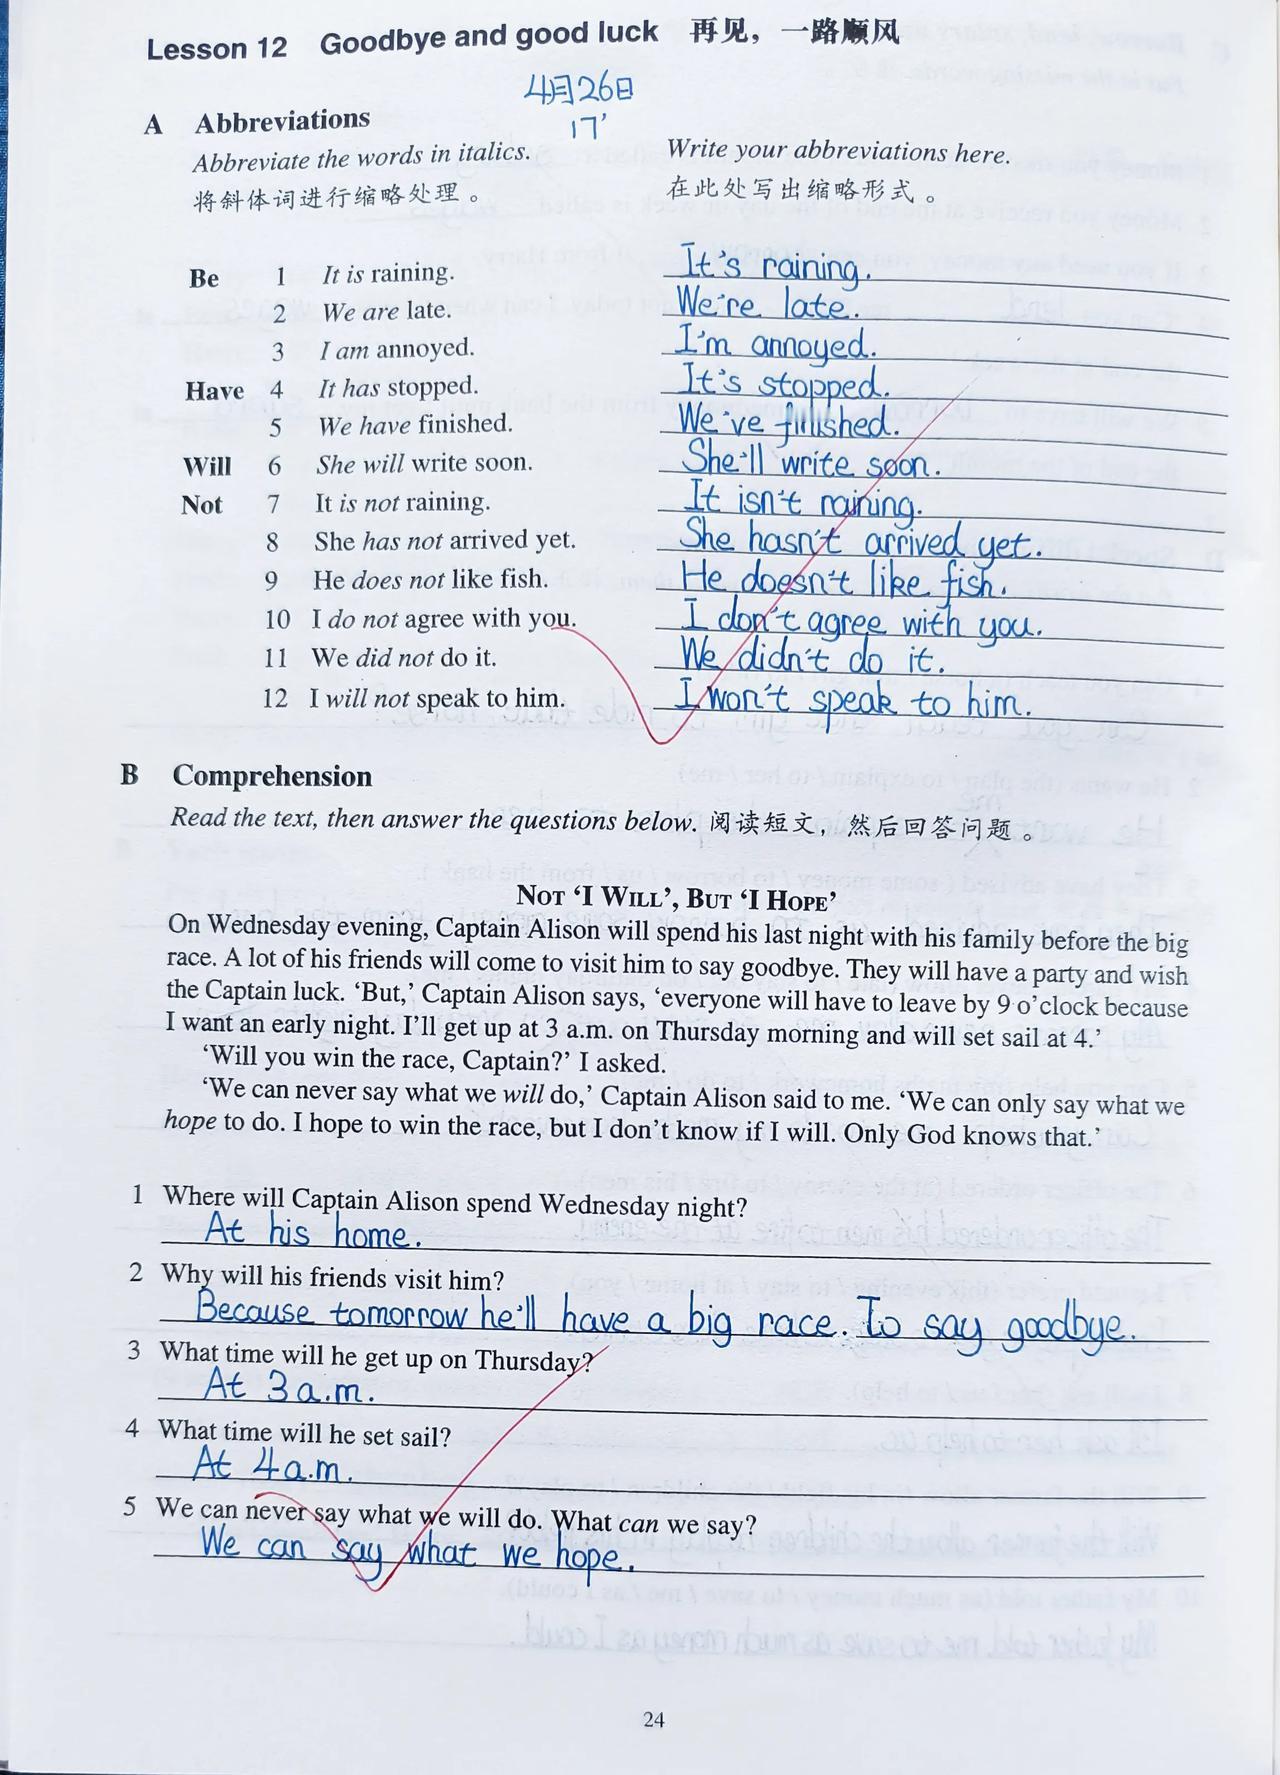 Lesson 12 Goodbye and good luck 再见，一路顺风
4月26日
17'
A Abbreviations
Abbreviate the words in italics. Write your abbreviations here.
将斜体词进行缩略处理。 在此处写出缩略形式。
Be 1 It is raining. It's raining.
2 We are late. We're late.
3 I am annoyed. I'm annoyed.
Have 4 It has stopped. It's stopped.
5 We have finished. We've finished.
Will 6 She will write soon. She'll write soon.
Not 7 It is not raining. It isn't raining.
8 She has not arrived yet. She hasn't arrived yet.
9 He does not like fish. He doesn't like fish.
10 I do not agree with you. I don't agree with you.
11 We did not do it. We didn't do it.
12 I will not speak to him. I won't speak to him.
B Comprehension
Read the text, then answer the questions below. 阅读短文，然后回答问题。
NOT ‘I WILL’, BUT ‘I HOPE’
On Wednesday evening, Captain Alison will spend his last night with his family before the big
race. A lot of his friends will come to visit him to say goodbye. They will have a party and wish
the Captain luck. ‘But,’ Captain Alison says, ‘everyone will have to leave by 9 o’clock because
I want an early night. I’ll get up at 3 a.m. on Thursday morning and will set sail at 4.’
‘Will you win the race, Captain?’ I asked.
‘We can never say what we will do,’ Captain Alison said to me. ‘We can only say what we
hope to do. I hope to win the race, but I don’t know if I will. Only God knows that.’
1 Where will Captain Alison spend Wednesday night?
At his home.
2 Why will his friends visit him?
Because tomorrow he'll have a big race. To say goodbye.
3 What time will he get up on Thursday?
At 3 a.m.
4 What time will he set sail?
At 4 a.m.
5 We can never say what we will do. What can we say?
We can say what we hope.
24